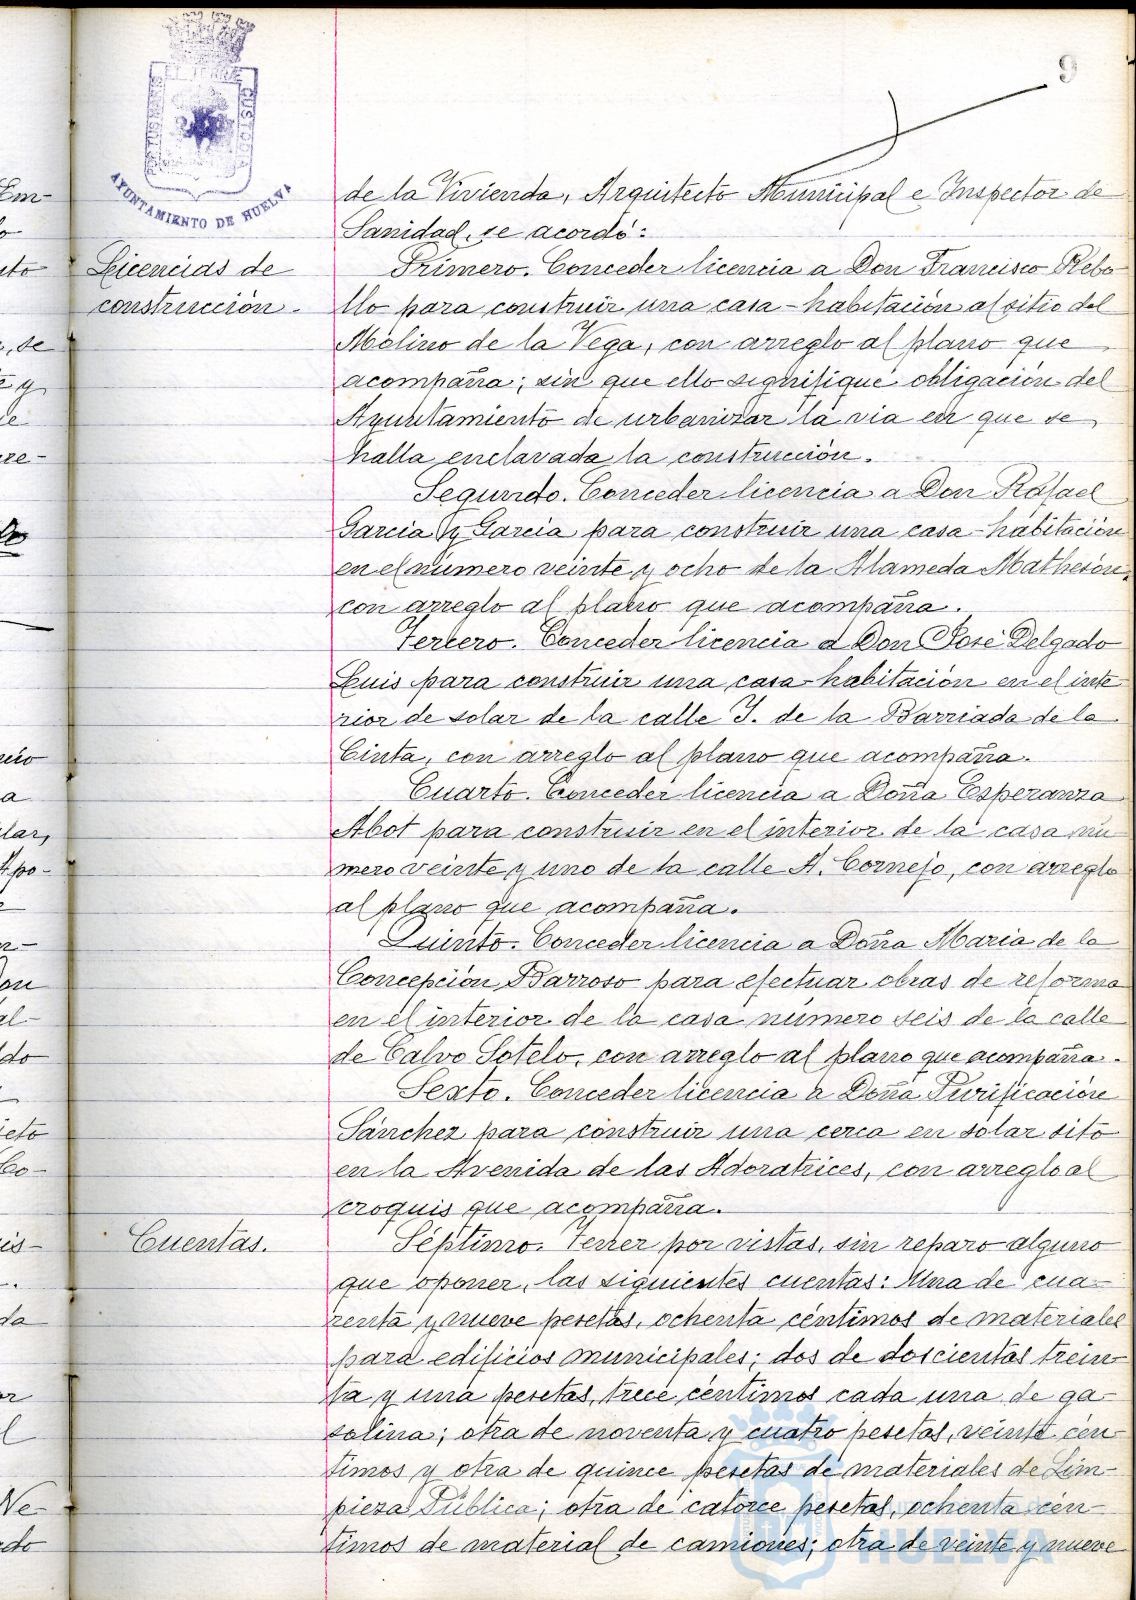 9
PORTUS MARIS ET TERRAE CUSTODIA
AYUNTAMIENTO DE HUELVA
de la Vivienda, Arquitecto Municipal e Inspector de
Sanidad, se acordó:
Licencias de
construcción.
Primero. Conceder licencia a Don Francisco Rebo-
llo para construir una casa-habitación al sitio del
Molino de la Vega, con arreglo al plano que
acompaña; sin que ello signifique obligación del
Ayuntamiento de urbanizar la via en que se
halla enclavada la construcción.
Segundo. Conceder licencia a Don Rafael
Garcia y Garcia para construir una casa-habitación
en el número veinte y ocho de la Alameda Mathesón,
con arreglo al plano que acompaña.
Tercero. Conceder licencia a Don José Delgado
Luis para construir una casa-habitación en el inte
rior de solar de la calle J. de la Barriada de la
Cinta, con arreglo al plano que acompaña.
Cuarto. Conceder licencia a Doña Esperanza
Abot para construir en el interior de la casa nú
mero veinte y uno de la calle A. Cornejo, con arreglo
al plano que acompaña.
Quinto. Conceder licencia a Doña Maria de la
Concepción Barroso para efectuar obras de reforma
en el interior de la casa número seis de la calle
de Calvo Sotelo, con arreglo al plano que acompaña.
Sexto. Conceder licencia a Doña Purificación
Sánchez para construir una cerca en solar sito
en la Avenida de las Adoratrices, con arreglo al
croquis que acompaña.
Cuentas.
Séptimo. Tener por vistas, sin reparo alguno
que oponer, las siguientes cuentas: Una de cua-
renta y nueve pesetas, ochenta céntimos de materiales
para edificios municipales; dos de doscientas trein-
ta y una pesetas, trece céntimos cada una de ga-
solina; otra de noventa y cuatro pesetas, veinte cén-
timos y otra de quince pesetas de materiales de Lim-
pieza Pública; otra de catorce pesetas, ochenta cén-
timos de material de camiones; otra de veinte y nueve
HUELVA